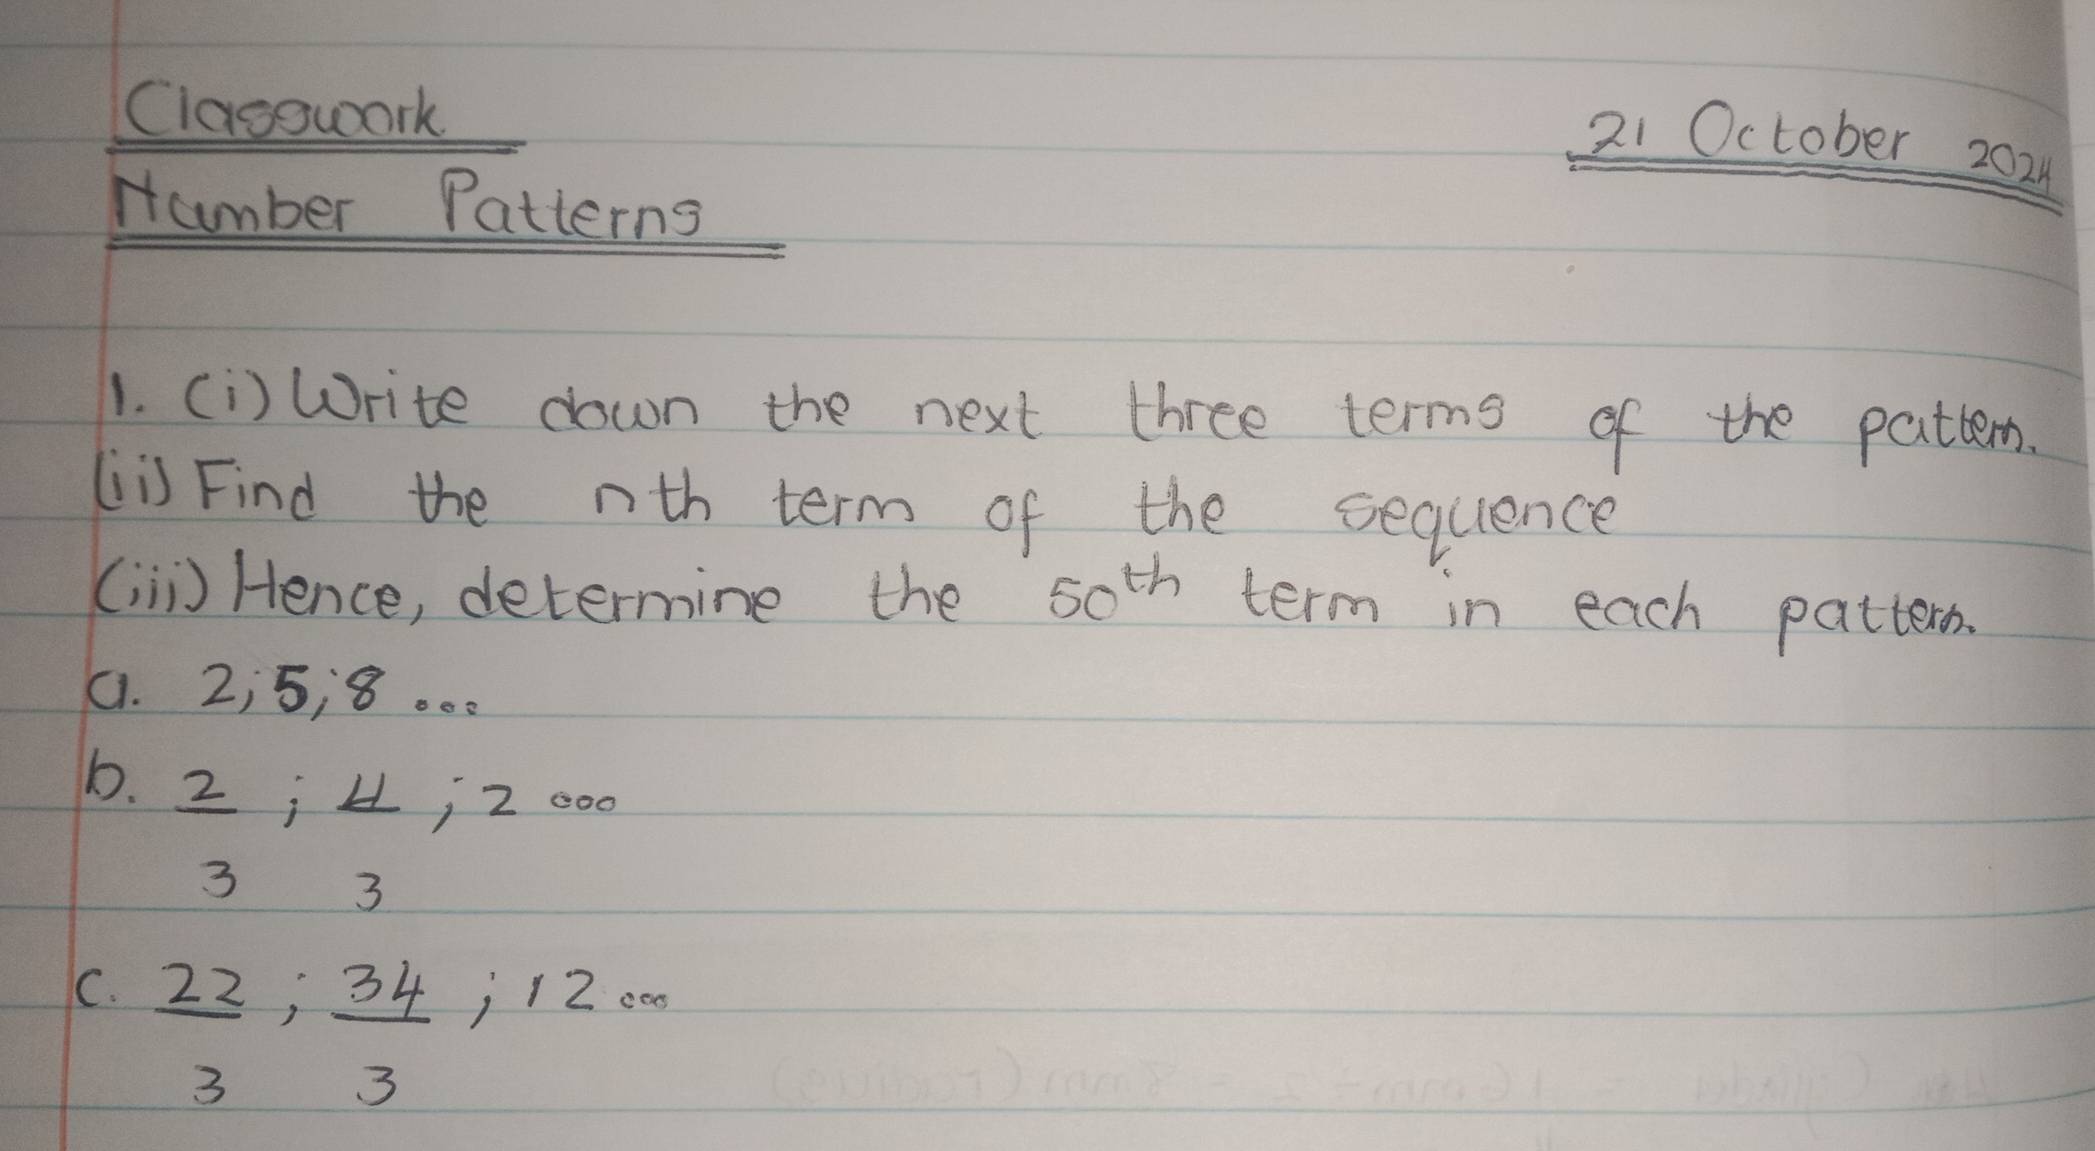 Classwork
21 October 2024
Number Patterns
1. (i) Write down the next three terms of the pattern.
(ii) Find the nth term of the sequence
(iii) Hence, determine the 50th term in each pattern.
a. 2; 5; 8 ...
b. 2/3 ; 4/3 ; 2 ...
c. 22/3 ; 34/3 ; 12 ...